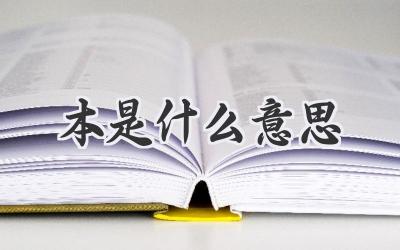 本是什么意思